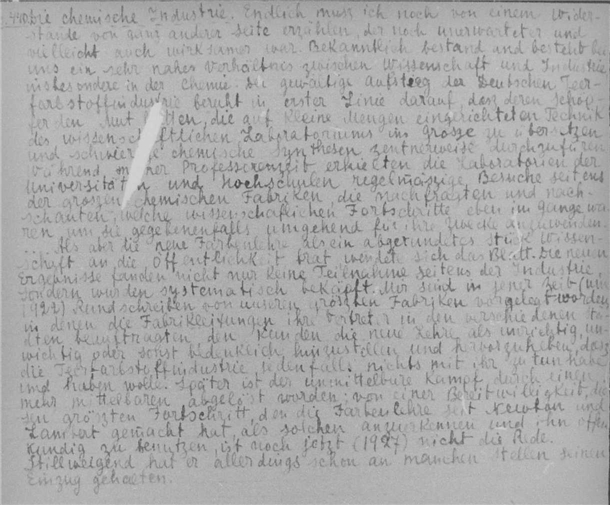 440 Die chemische Industrie. Endlich muss ich noch von einem Wider-
stande von ganz anderer Seite erzählen, der noch unerwarteter und
vielleicht auch wirksamer war. Bekanntlich bestand und besteht bei
uns ein sehr nahes Verhältnis zwischen Wissenschaft und Industrie
insbesondere in der Chemie. Die gewaltige Aufstieg der Deutschen Teer-
farbstoffindustrie beruht in erster Linie darauf, dass deren Schöp-
fer den Mut hatten, die auf kleine Mengen eingerichteten Technik
des wissenschaftlichen Laboratoriums ins Grosse zu übersetzen
und schwierige chemische Synthesen zentnerweise durchzufüren
Während meiner Professorenzeit erhielten die Laboratorien der
Universitäten und Hochschulen regelmässige Besuche seitens
der grossen chemischen Fabriken, die nachfragten und nach-
schauten, welche wissenschaflichen Fortschritte eben im Gange wa-
ren um sie gegebenenfalls umgehend für ihre Zwecke anzuwenden.
Als aber die neue Farbenlehre als ein abgerundetes Stück Wissen-
schaft an die Öffentlichkeit trat wendete sich das Blatt. Die neuen
Ergebnisse fanden nicht nur keine Teilnahme seitens der Industrie,
sondern wurden systematisch bekämpft. Mir sind in jener Zeit (um
1921) Rundschreiben von unseren grössten Fabriken vorgelegt worden,
in denen die Fabrikleitungen ihre Vertreter in den verschiedenen Stä-
dten beauftragten, den Kunden die neue Lehre als unrichtig, un-
wichtig oder sonst bedenklich hinzustellen und hervorzuheben, dass
die Teerfarbstoffindustrie jedenfalls nichts mit ihr zu tun habe
und haben wolle. Später ist der unmittelbare Kampf durch einen
mehr mittelbaren abgelöst worden: von einer Bereitwilligkeit, die-
sen gröszten Fortschritt, den die Farbenlehre seit Newton und
Lambert gemacht hat, als solchen anzuerkennen und ihn offen
kundig zu benutzen, ist noch jetzt (1927) nicht die Rede.
Stillweigend hat er allerdings schon an manchen Stellen seinen
Einzug gehalten.